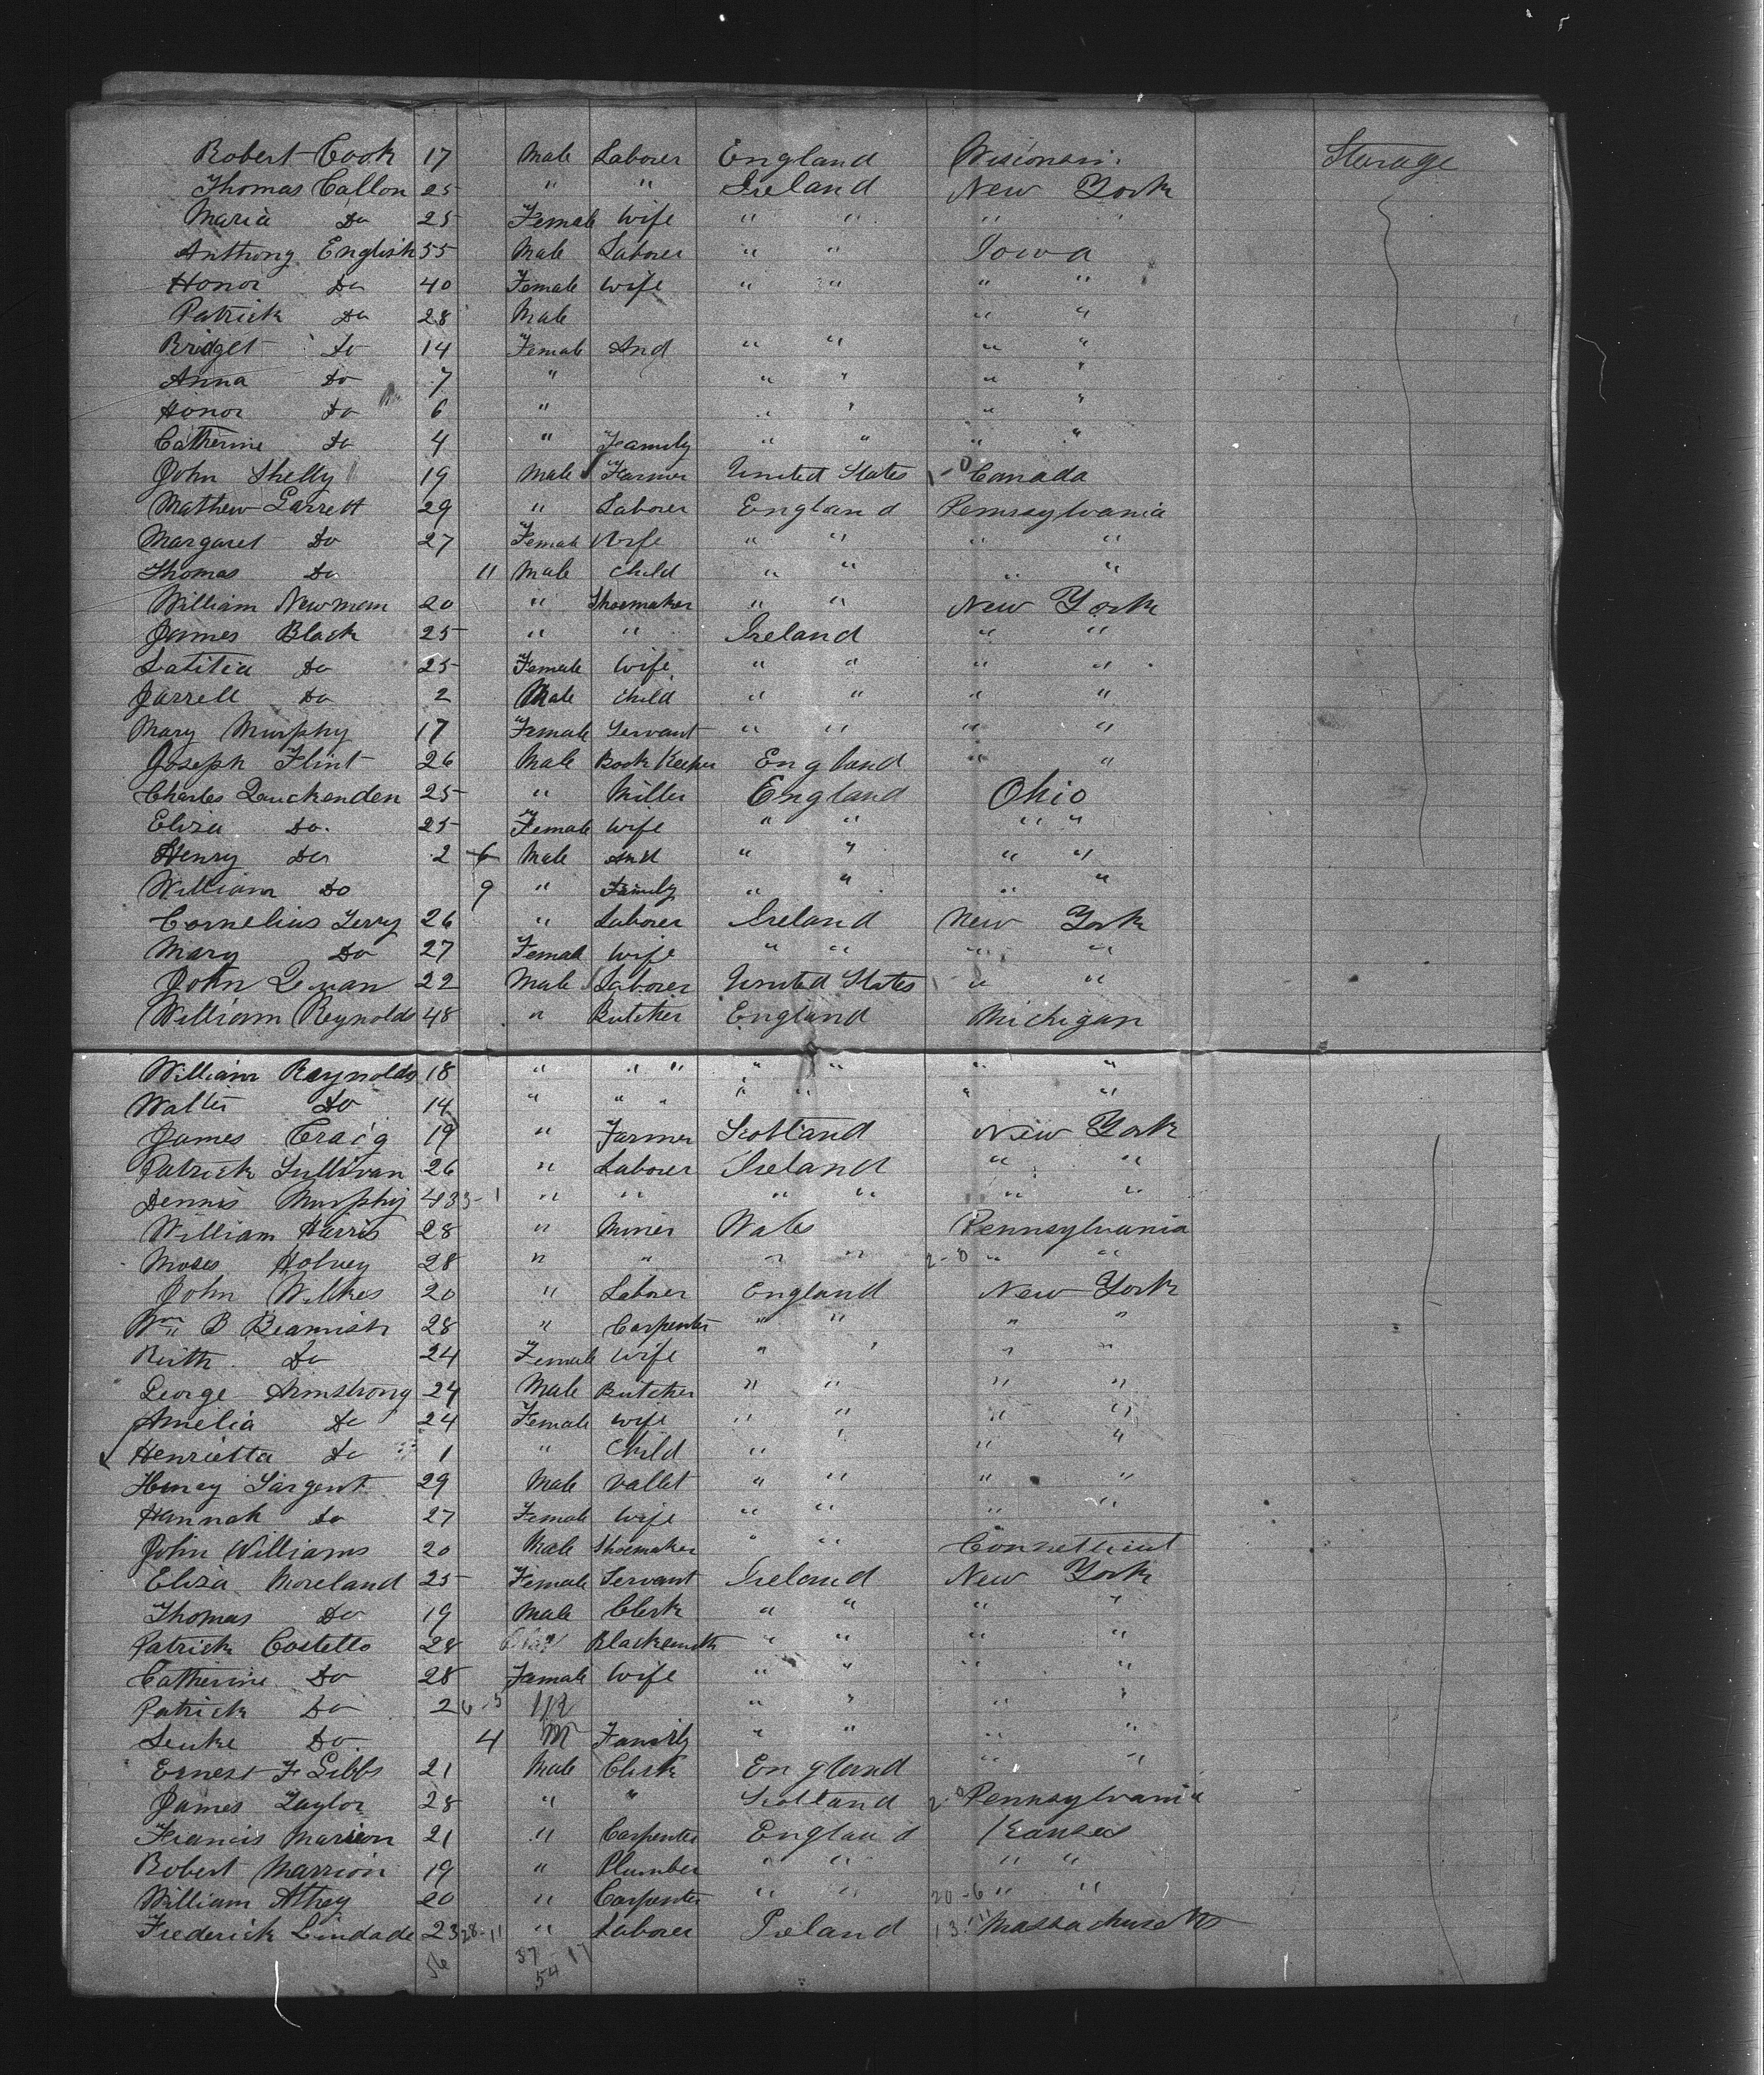 Robert Cook 17 Male Laborer England Wisconsin Starage
Thomas Callon 25 " " Ireland New York
Maria Do 25 Female Wife " " " "
Anthony English 55 Male Laborer " " Iowa
Honor Do 40 Female Wife " " " "
Patrick Do 28 Male " "
Bridget Do 14 Female And " " " "
Anna Do 7 " " " " "
Honor Do 6 " " " " "
Catherine Do 4 " Family " " " "
John Shelly 19 Male Farmer United States 1-0 Canada
Mathew Garrett 29 " Laborer England Pennsylvania
Margaret Do 27 Female Wife " " " "
Thomas Do 11 Male Child " " " "
William Newman 20 " Shoemaker " " New York
James Black 25 " " Ireland " "
Latitia Do 25 Female Wife " " " "
Jarrell Do 2 Male Child " " " "
Mary Murphy 17 Female Servant " " " "
Joseph Flint 26 Male Book Keeper England " "
Charles Quckenden 25 " Miller England Ohio
Eliza Do. 25 Female Wife " " " "
Henry Do 2 6 Male And " " " "
William Do 9 " Family " " " "
Cornelius Terry 26 " Laborer Ireland New York
Mary Do 27 Female Wife " " " "
John Quan 22 Male Laborer United States " "
William Reynolds 48 " Butcher England Michigan
William Reynolds 18 " " " " " " "
Walter Do 14 " " " " " " "
James Craig 19 " Farmer Scotland New York
Patrick Sullivan 26 " Laborer Ireland " "
Dennis Murphy 43 3-1 " " " " " "
William Harris 28 " Miner Wales Pennsylvania
Moses Holvey 28 " " " " 2-0 " "
John Wilkes 20 " Laborer England New York
Wm B Beamish 28 " Carpenter " " " "
Ruth Do 24 Female Wife " " " "
George Armstrong 24 Male Butcher " " " "
Amelia Do 24 Female Wife " " " "
Henrietta Do 1 " Child " " " "
Henry Sargent 29 Male Vallet " " " "
Hannah Do 27 Female Wife " " " "
John Williams 20 Male Shoemaker " " Connetticut
Eliza Moreland 25 Female Servant Ireland New York
Thomas Do 19 Male Clerk " " " "
Patrick Costello 28 Blacksmith " " " "
Catherine Do 28 Female Wife " " " "
Patrick Do 2 6-5 " " " "
Do 4 M Family " " " "
Ernest F Gibbs 21 Male Clerk England " "
James Taylor 28 " " Scotland 2-0 Pennsylvania
Francis Marrion 21 " Carpenter England Kansas
Robert Marrion 19 " Plumber " " " "
William Athey 20 " Carpenter " " 20-6 " "
Frederick Lindade 23 28-11 " Laborer Ireland 13 Massachusetts
56 37 17
54